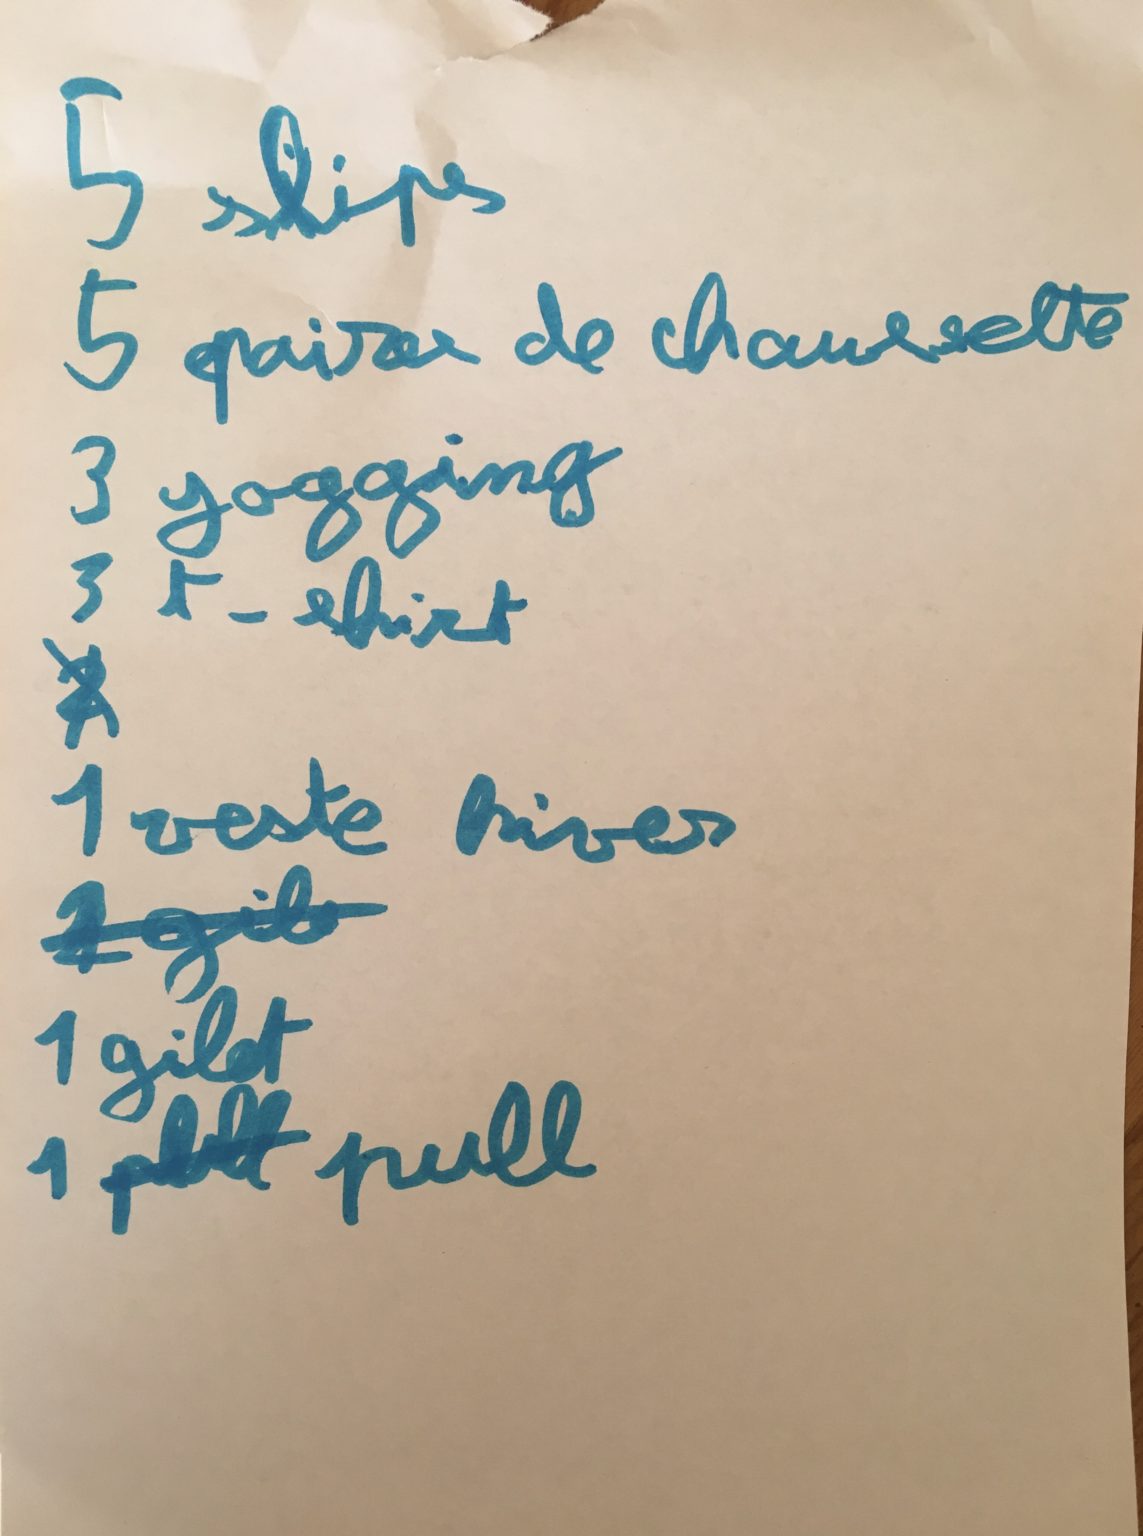 5 slips
5 paires de chaussette
3 yogging
3 T-shirt
1 veste hiver
2 gil
1 gilet
1 pull